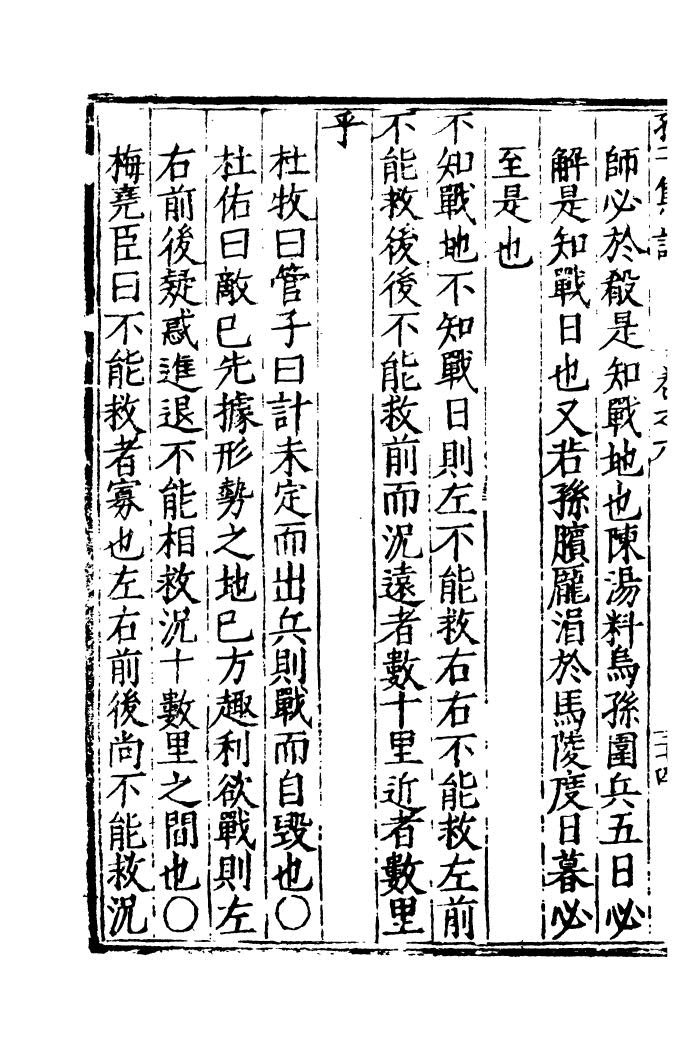 孫子集註　卷之六　二十四
師必於殽是知戰地也陳湯料烏孫圍兵五日必
解是知戰日也又若孫臏龐涓於馬陵度日暮必
至是也
不知戰地不知戰日則左不能救右右不能救左前
不能救後後不能救前而況遠者數十里近者數里
乎
杜牧曰管子曰計未定而出兵則戰而自毀也〇
杜佑曰敵已先據形勢之地已方趣利欲戰則左
右前後疑惑進退不能相救況十數里之間也〇
梅堯臣曰不能救者寡也左右前後尚不能救況